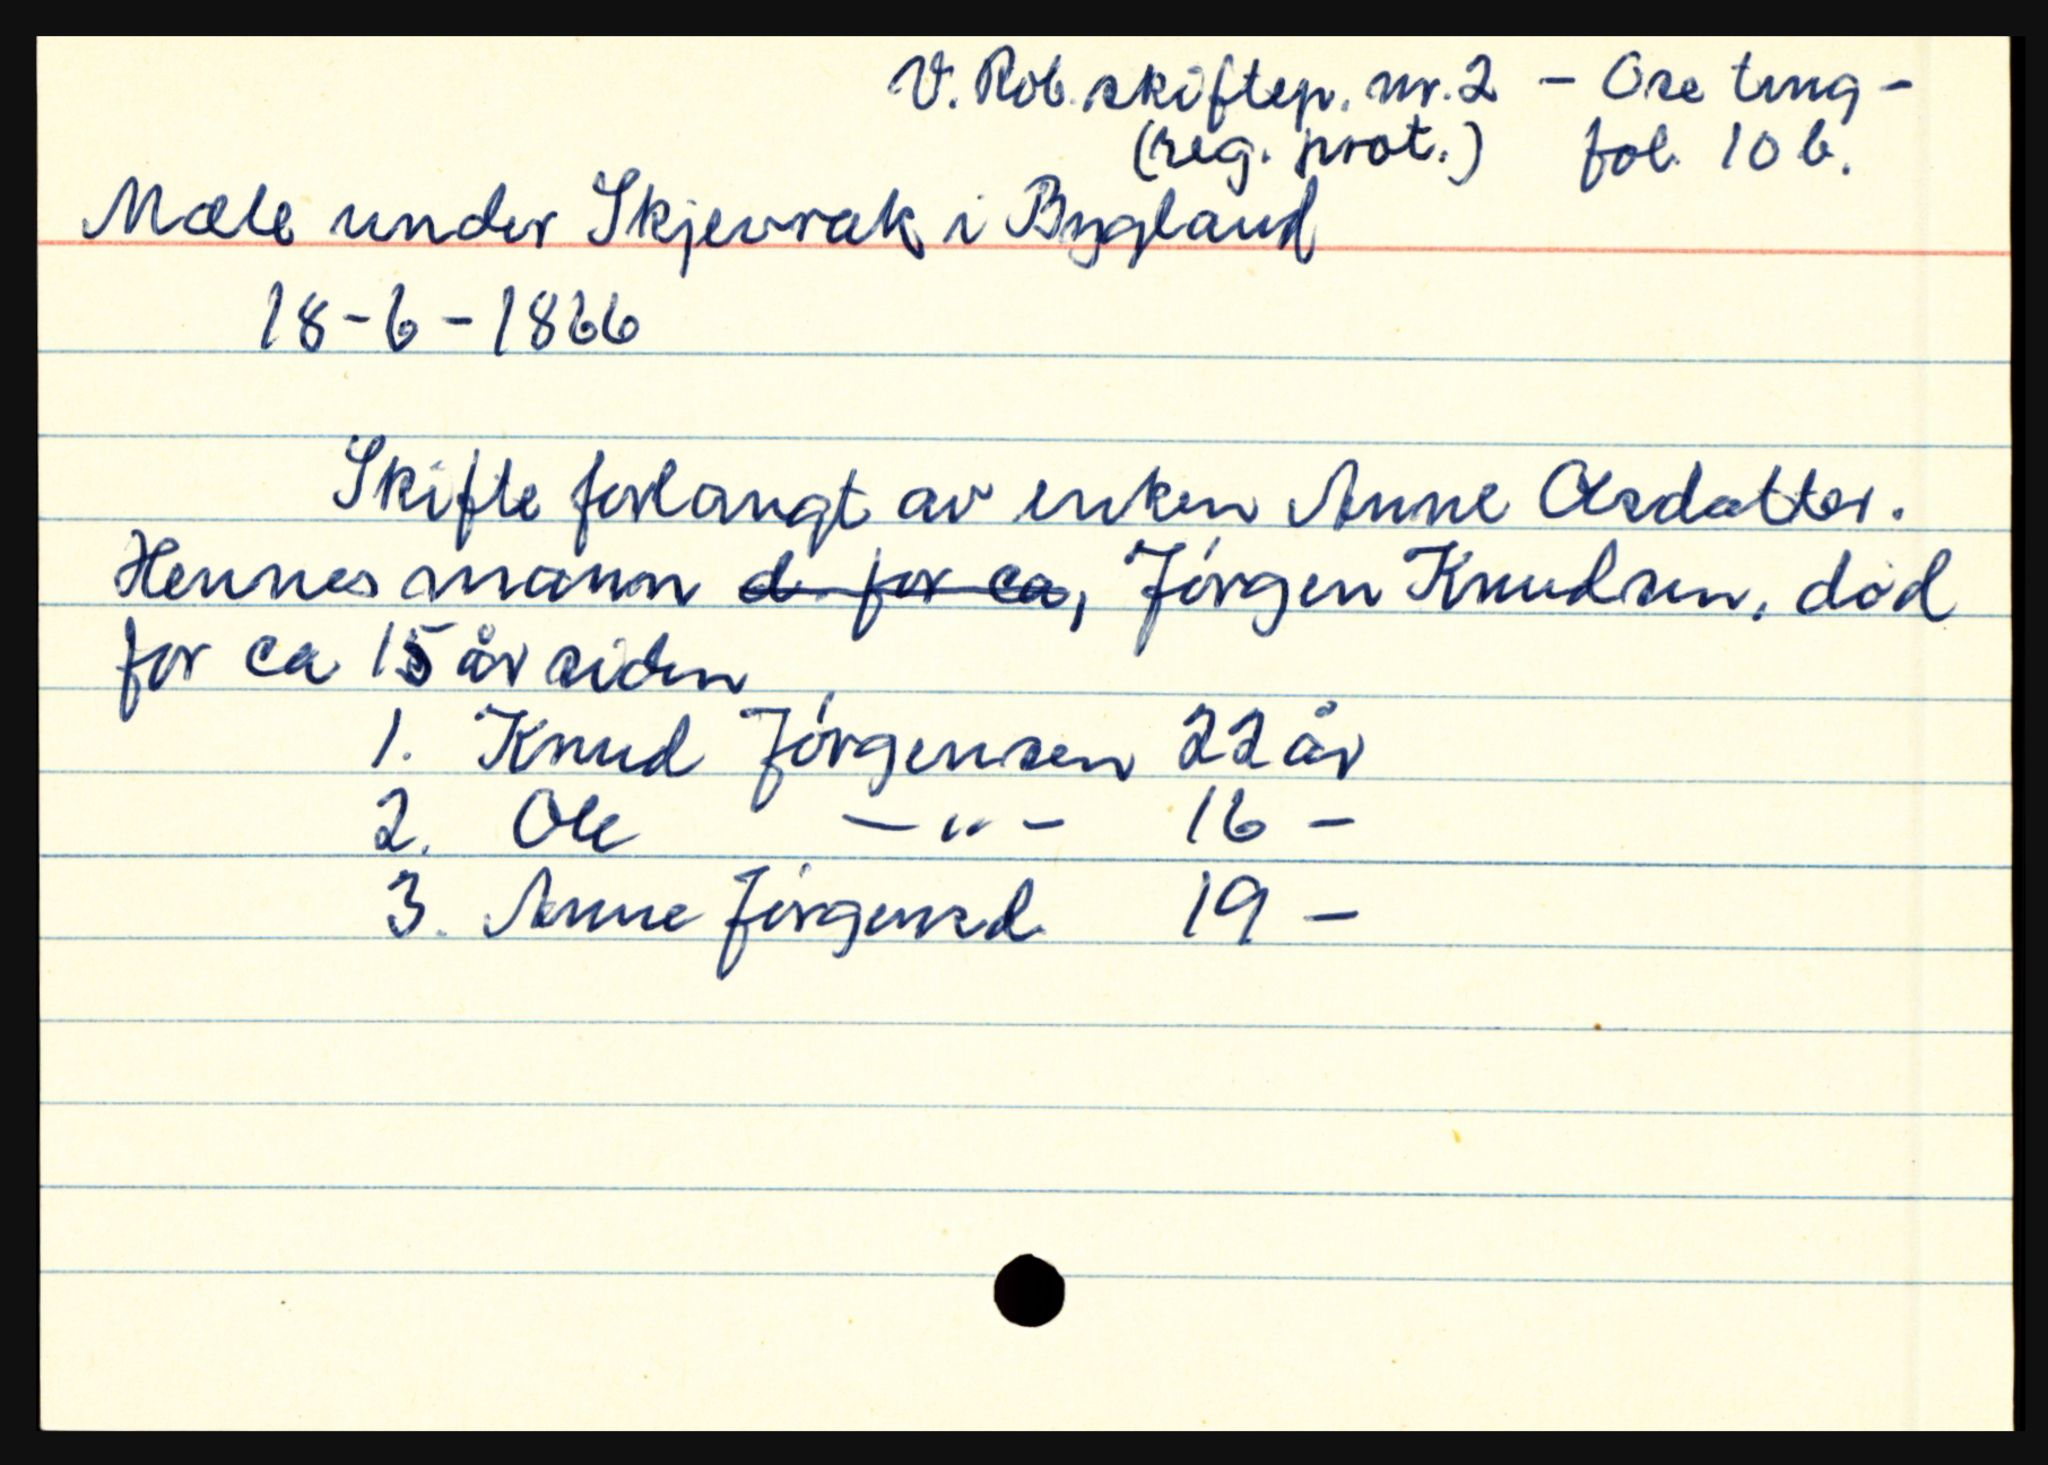 V. Rob. skiftep. nr. 2 - Ose ting -
(reg. prot.) fol. 10 b.
Mæle under Skjevrak i Bygland
18-6-1866
Skifte forlangt av enken Anne Olsdatter.
Hennes mann d. for ca, Jörgen Knudsen, död
for ca 15 år siden
1. Knud Jörgensen 22 år
2. Ole - " - 16 -
3. Anne Jörgensd. 19 -